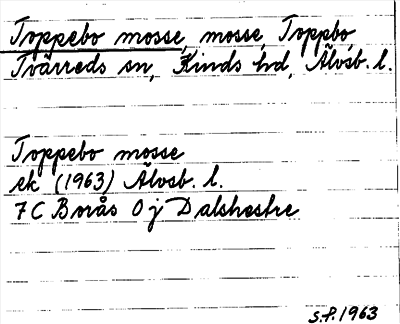 Toppebo mosse, mosse, Toppbo,
Tvärreds sn, Kinds hd, Älvsb. l.
Toppebo mosse
ek (1963) Älvsb. l.
7 C Borås 0 j Dalshestre
S.F. 1963